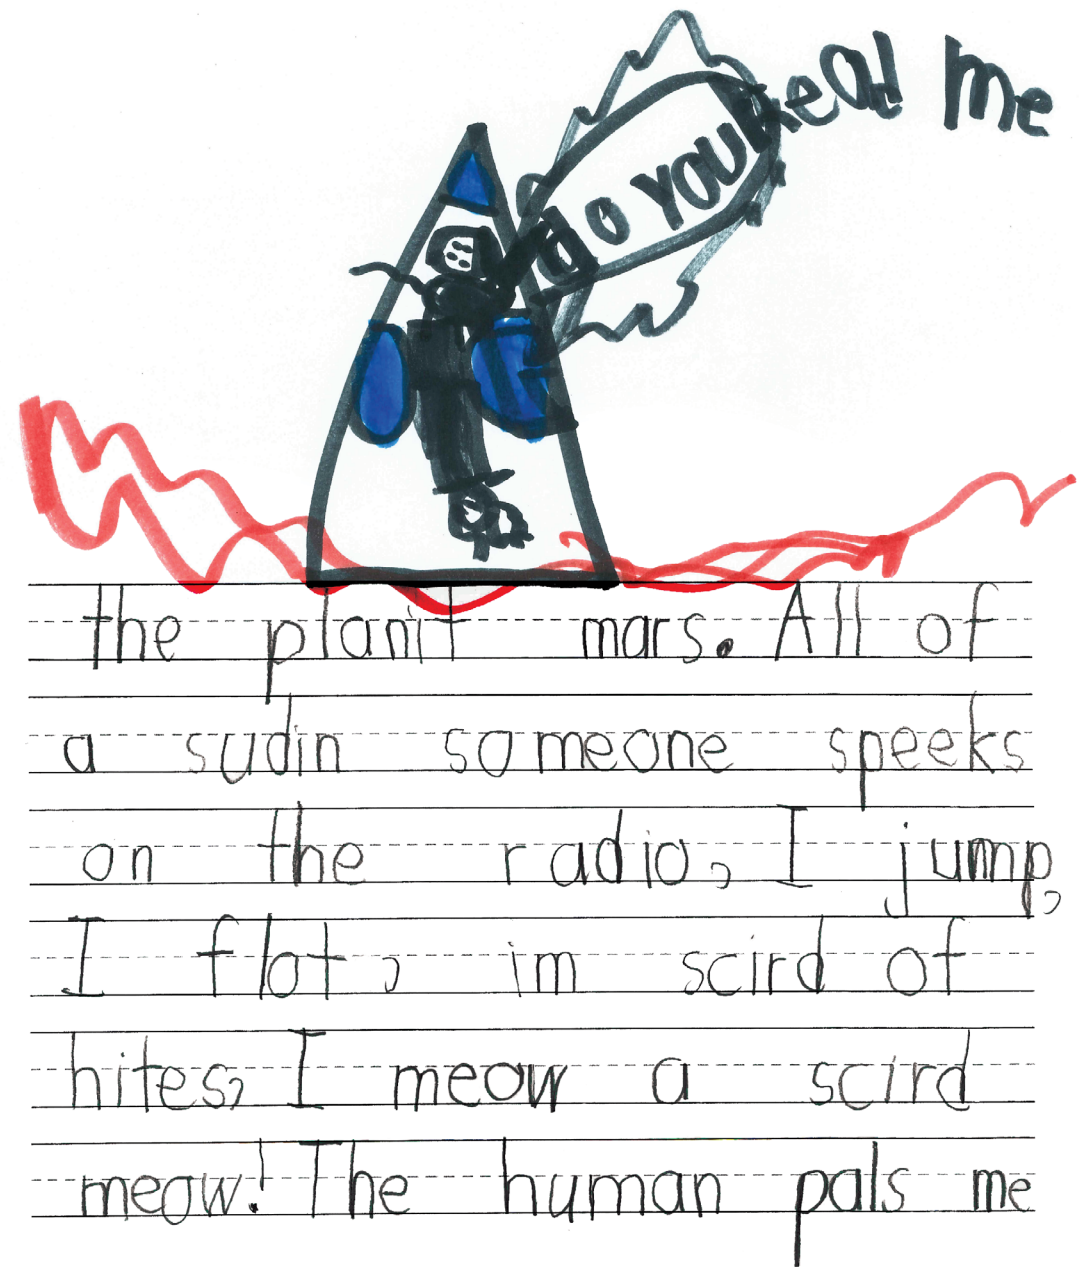 do you Read me
the planit mars. All of
a sudin someone speeks
on the radio, I jump,
I flot, im scird of
hites, I meow a scird
meow! The human pals me